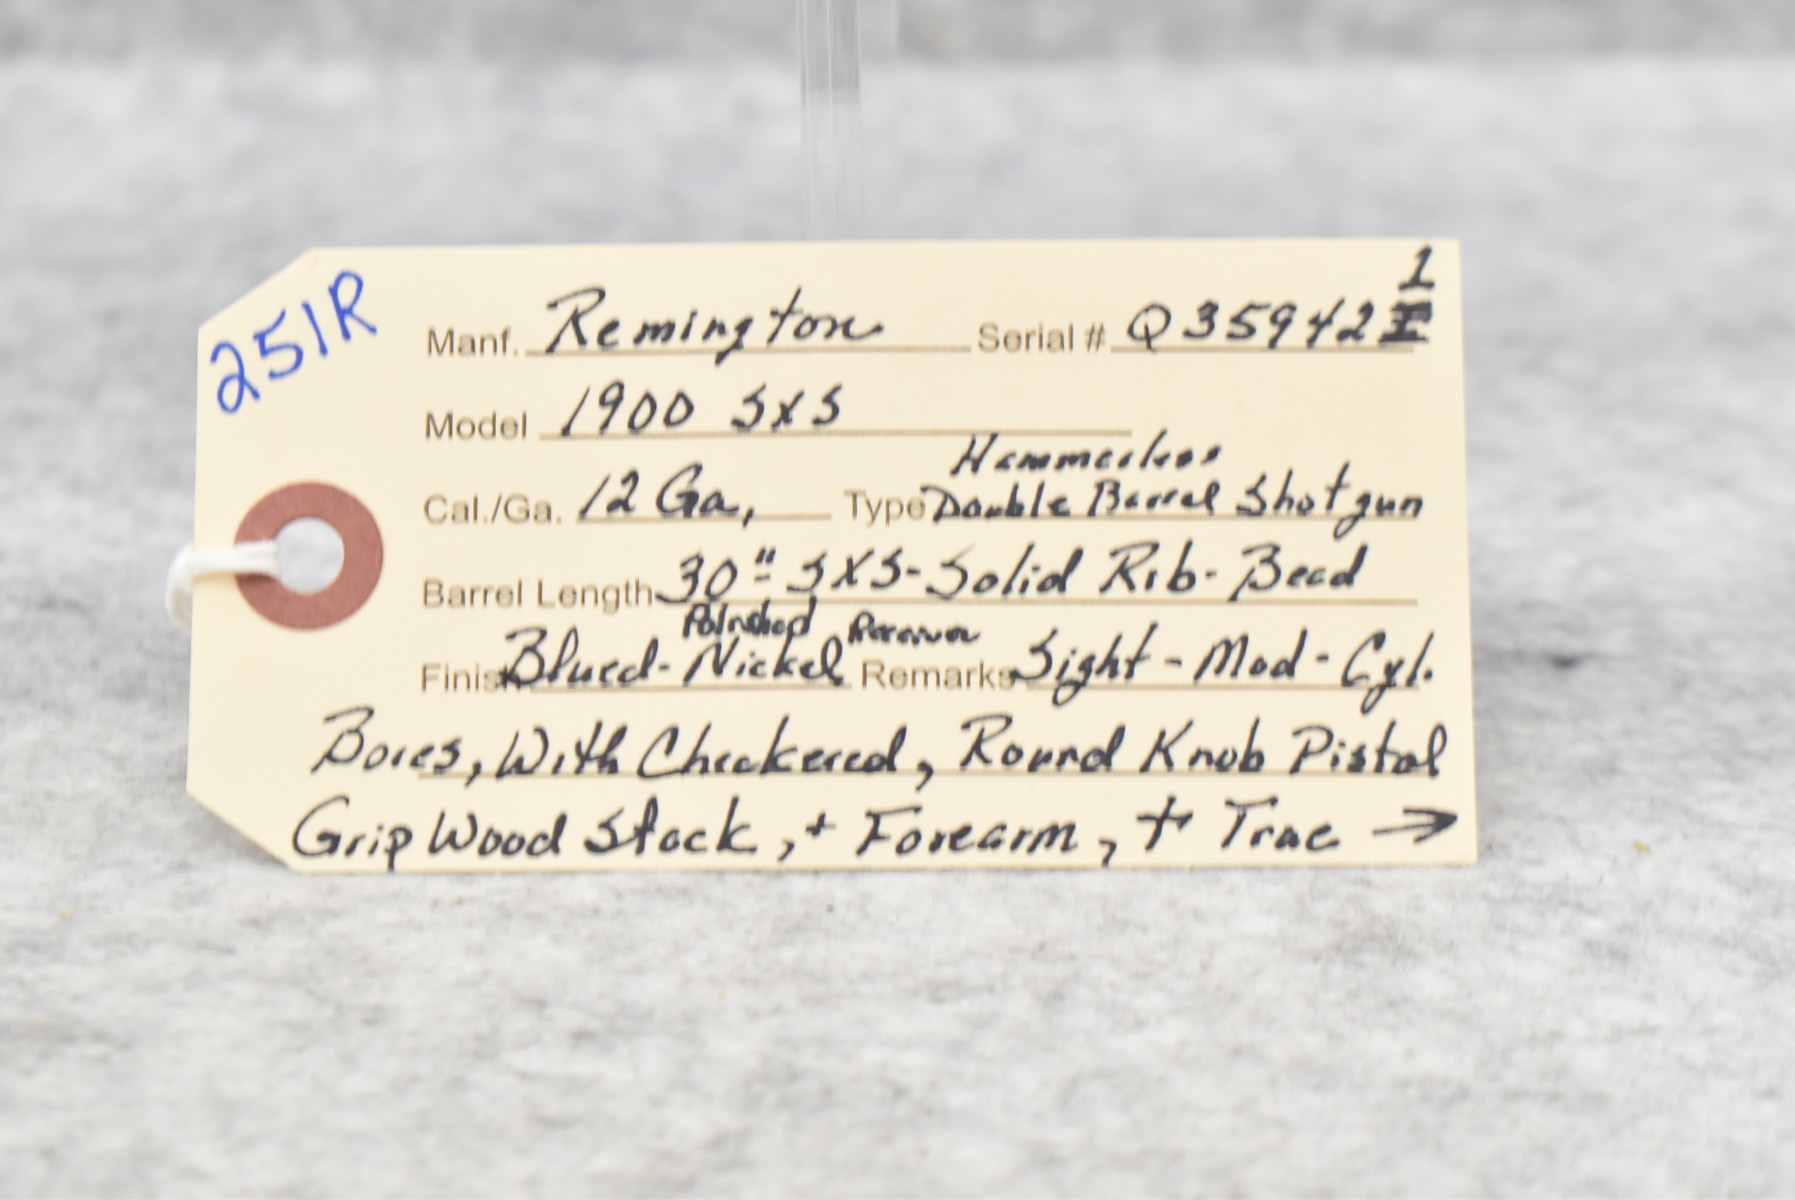 251R
Manf. Remington Serial # Q359421
Model 1900 SXS
Hammerless
Cal./Ga. 12 Ga, Type Double Barrel Shotgun
Barrel Length 30" SXS-Solid Rib-Bead
Polished Receiver
Finish Blued-Nickel Remarks Sight-Mod-Cyl.
Bores, With Checkered, Round Knob Pistol
Grip Wood Stock, + Forearm, + True →